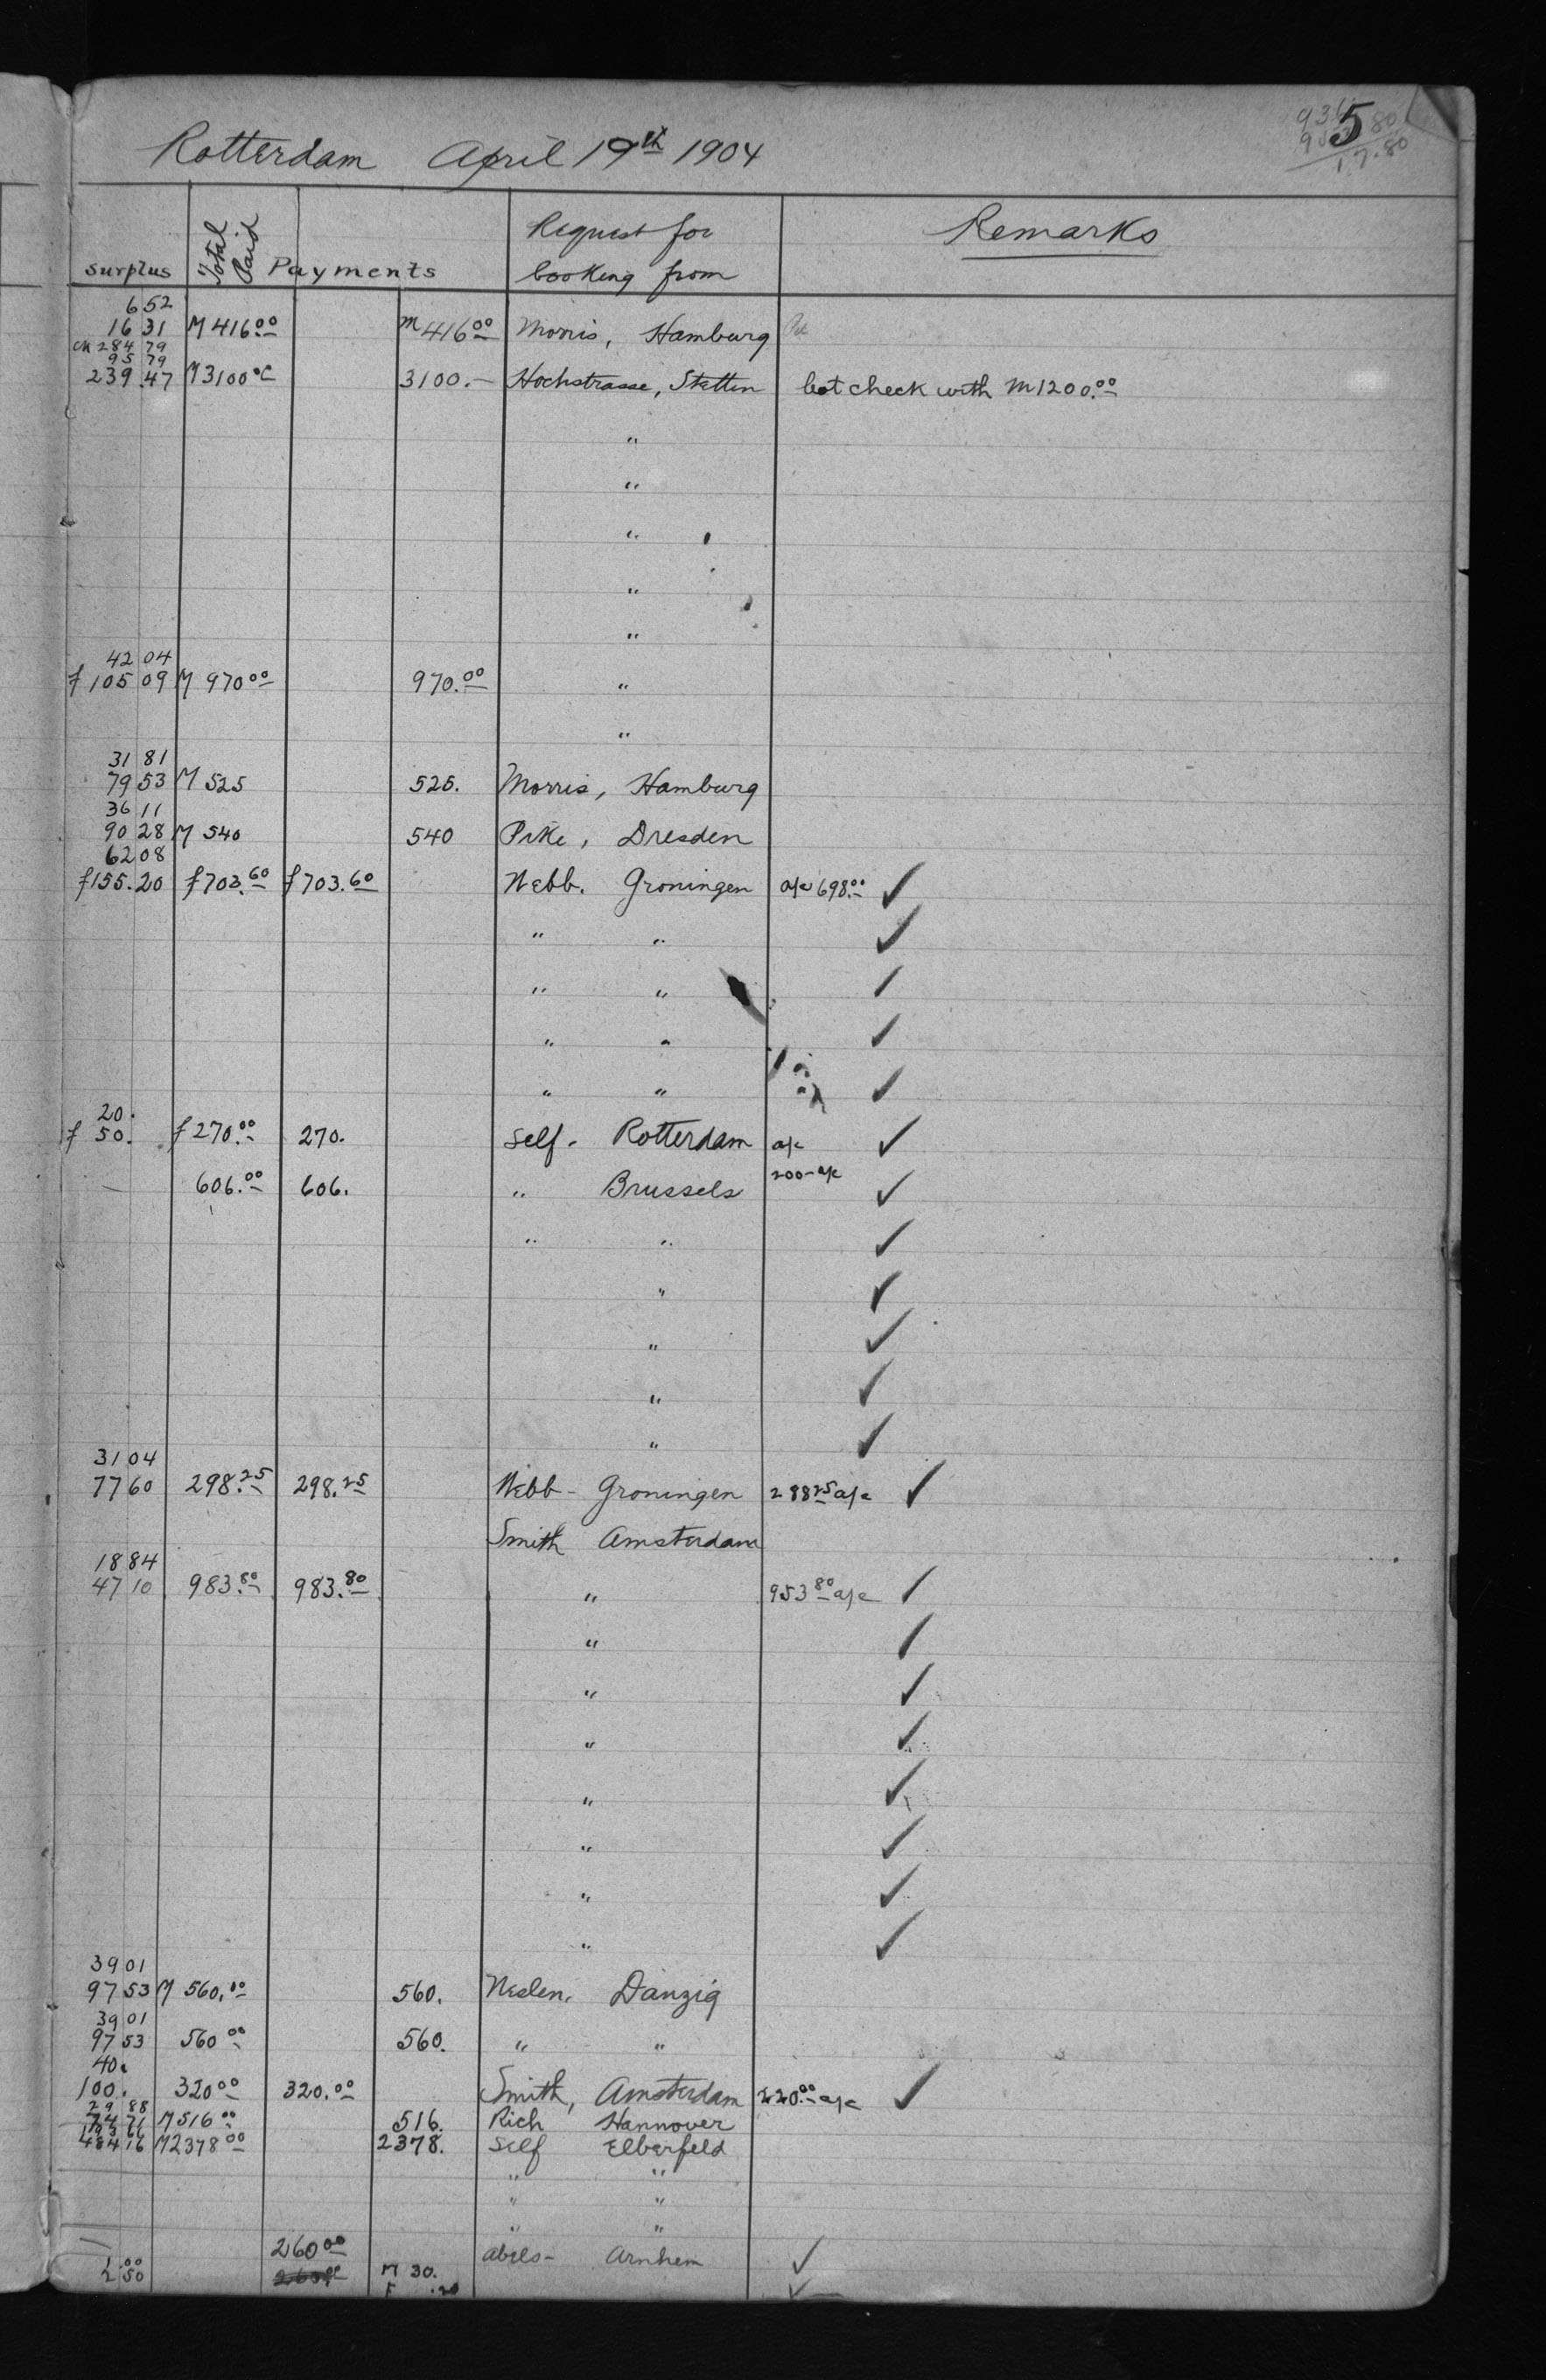 5
1 7.80
Rotterdam April 19th 1904
Surplus Total Paid Payments Request for booking from Remarks
6 52
16 31 M 416.00 M 416.00 Morris, Hamburg
M 284 79
95 79
239.47 M 3100.00 3100.— Hochstrasse, Stettin lost check with M 1200.00
"
"
"
"
"
42 04
f 105 09 M 970.00 970.00 "
"
31 81
79 53 M 525 525. Morris, Hamburg
36 11
90 28 M 540 540 Pike, Dresden
62 08
f 155.20 f 703.60 f 703.60 Webb. Groningen a/c 698.00 ✓
" " ✓
" " ✓
" " ✓
" " ✓
20.
f 50. f 270.00 270. Self - Rotterdam a/c ✓
— 606.00 606. " Brussels 200 - a/c ✓
" " ✓
" ✓
" ✓
" ✓
" ✓
31 04
77 60 298.25 298.25 Webb - Groningen 288 25 a/c ✓
Smith Amsterdam
18 84
47 10 983.80 983.80 " 953 80 a/c ✓
" ✓
" ✓
" ✓
" ✓
" ✓
" ✓
" ✓
39 01
97 53 M 560.00 560. Neslen, Danzig
39 01
97 53 560 00 560. " "
40.
100. 320 00 320.00 Smith, Amsterdam 220.00 a/c ✓
29 88
74 71 M 516 00 516. Rich Hannover
484 16 M 2378 00 2378. Self Elberfeld
" "
" "
" "
260 00 Abels - Arnhem ✓
1 00
2 50 M 30. ✓